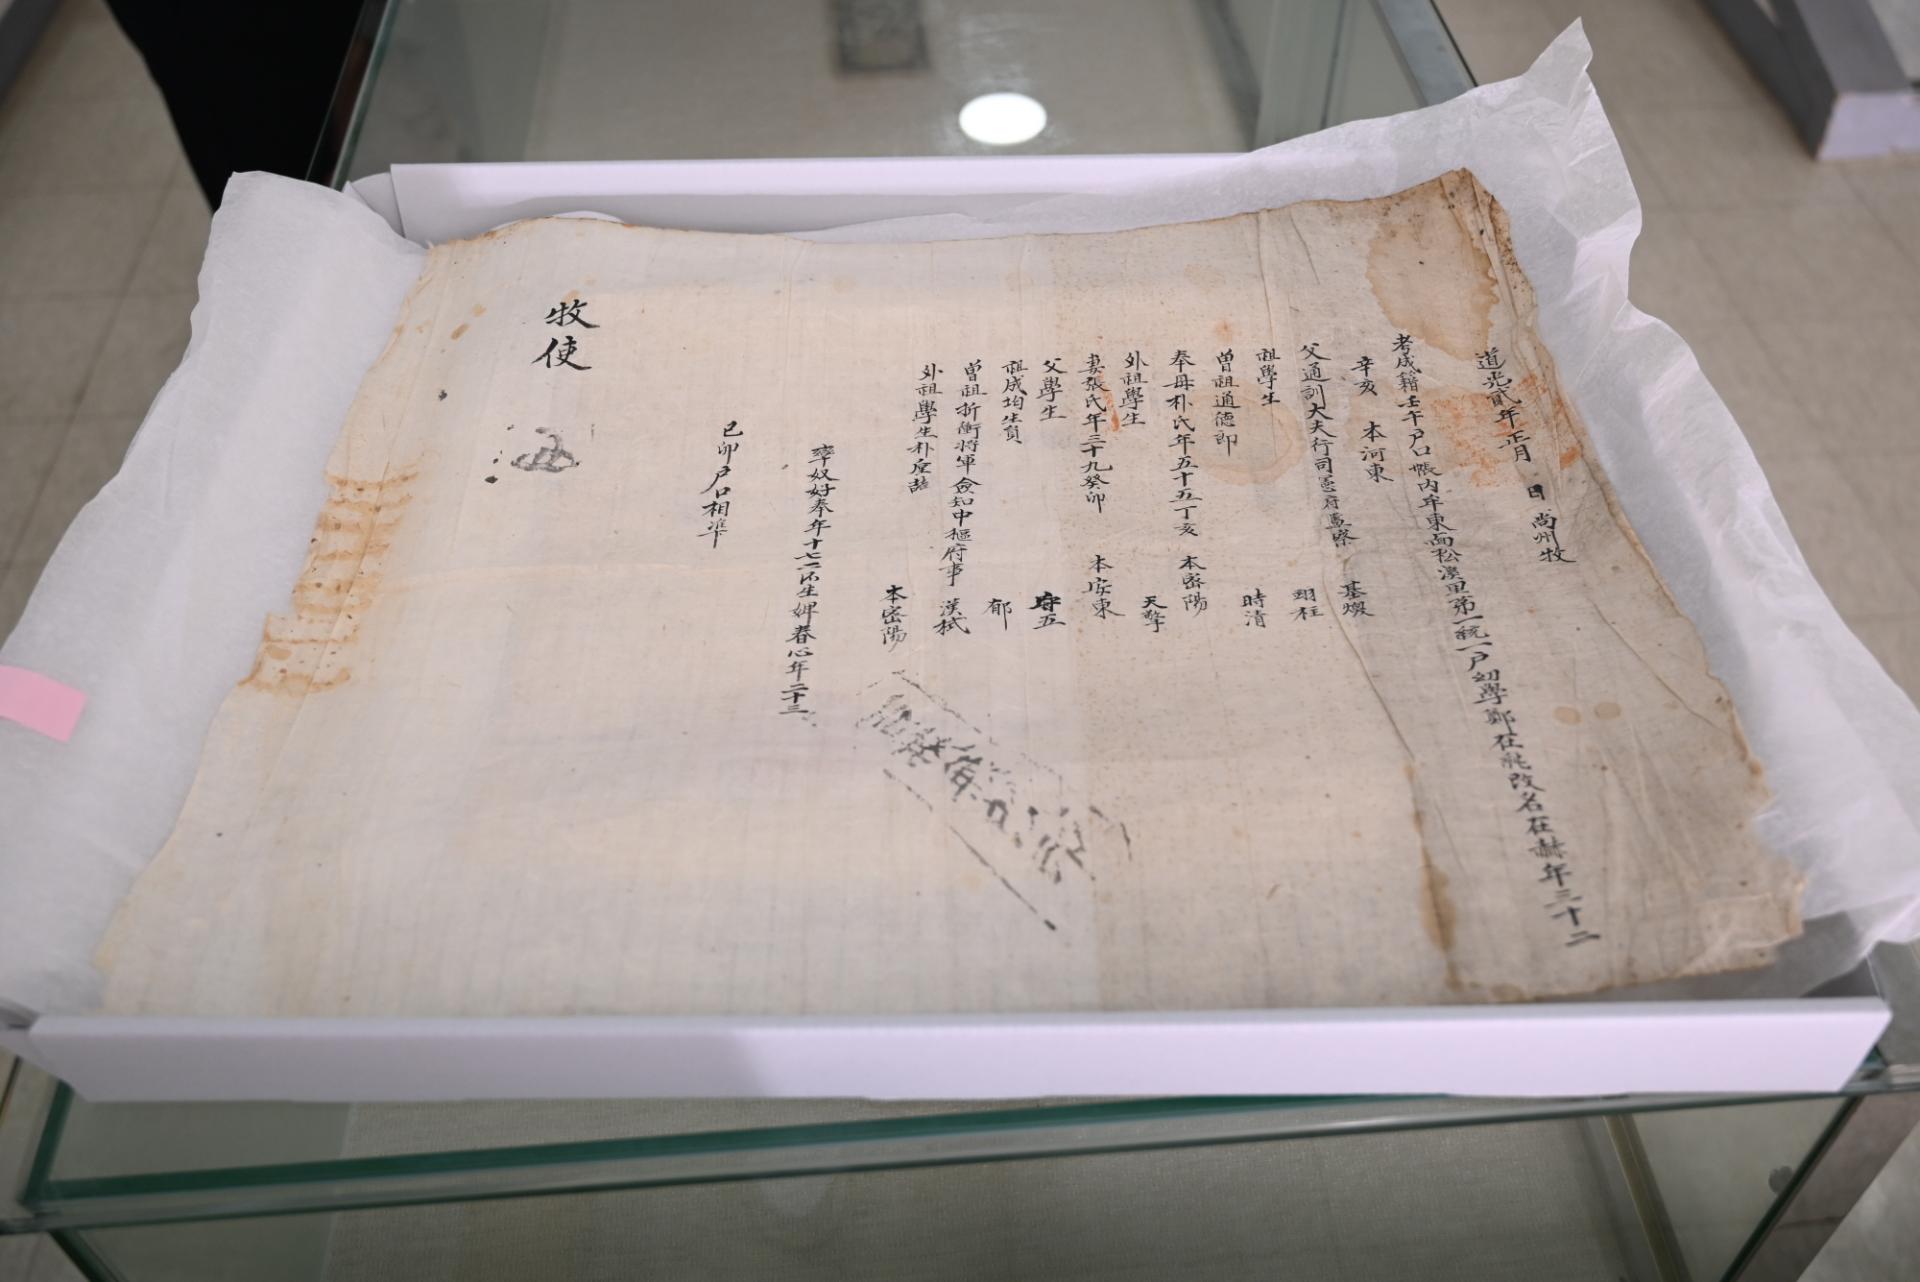 道光貳年正月 日 尚州牧
考成籍壬午戶口帳內牟東面松澳里第一統一戶幼學鄭在 改名在赫年三十二
辛亥 本河東
父通訓大夫行司憲府監察 基煥
祖學生 翊柱
曾祖通德郎 時清
奉母朴氏年五十五丁亥 本密陽
外祖學生 天擎
妻張氏年三十九癸卯 本安東
父學生 守五
祖成均生員 郁
曾祖折衝將軍僉知中樞府事 漢栻
外祖學生朴 喆 本密陽
率奴好奉年十七 生婢春心年二十三
己卯戶口相準
牧使